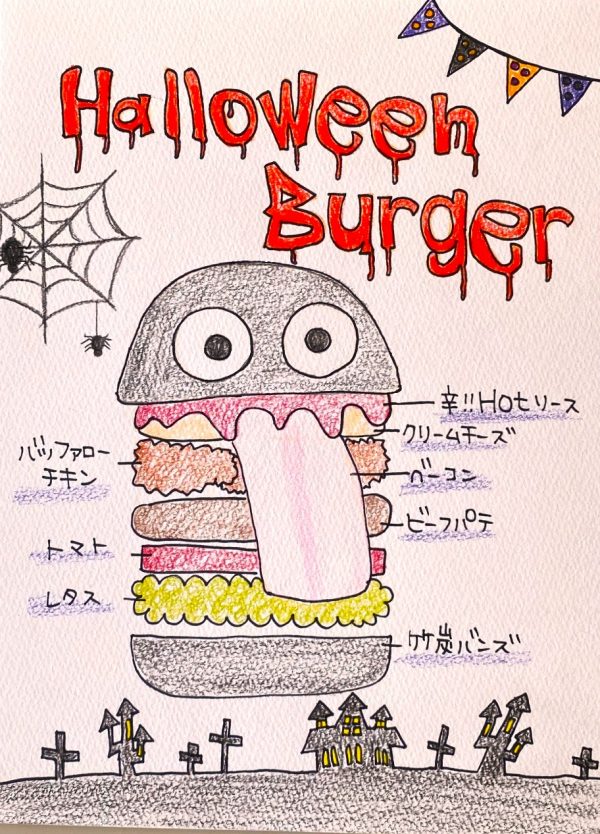 Halloween
Burger
辛!!Hotソース
クリームチーズ
バッファロー
チキン
ベーコン
ビーフパテ
トマト
レタス
竹炭バンズ